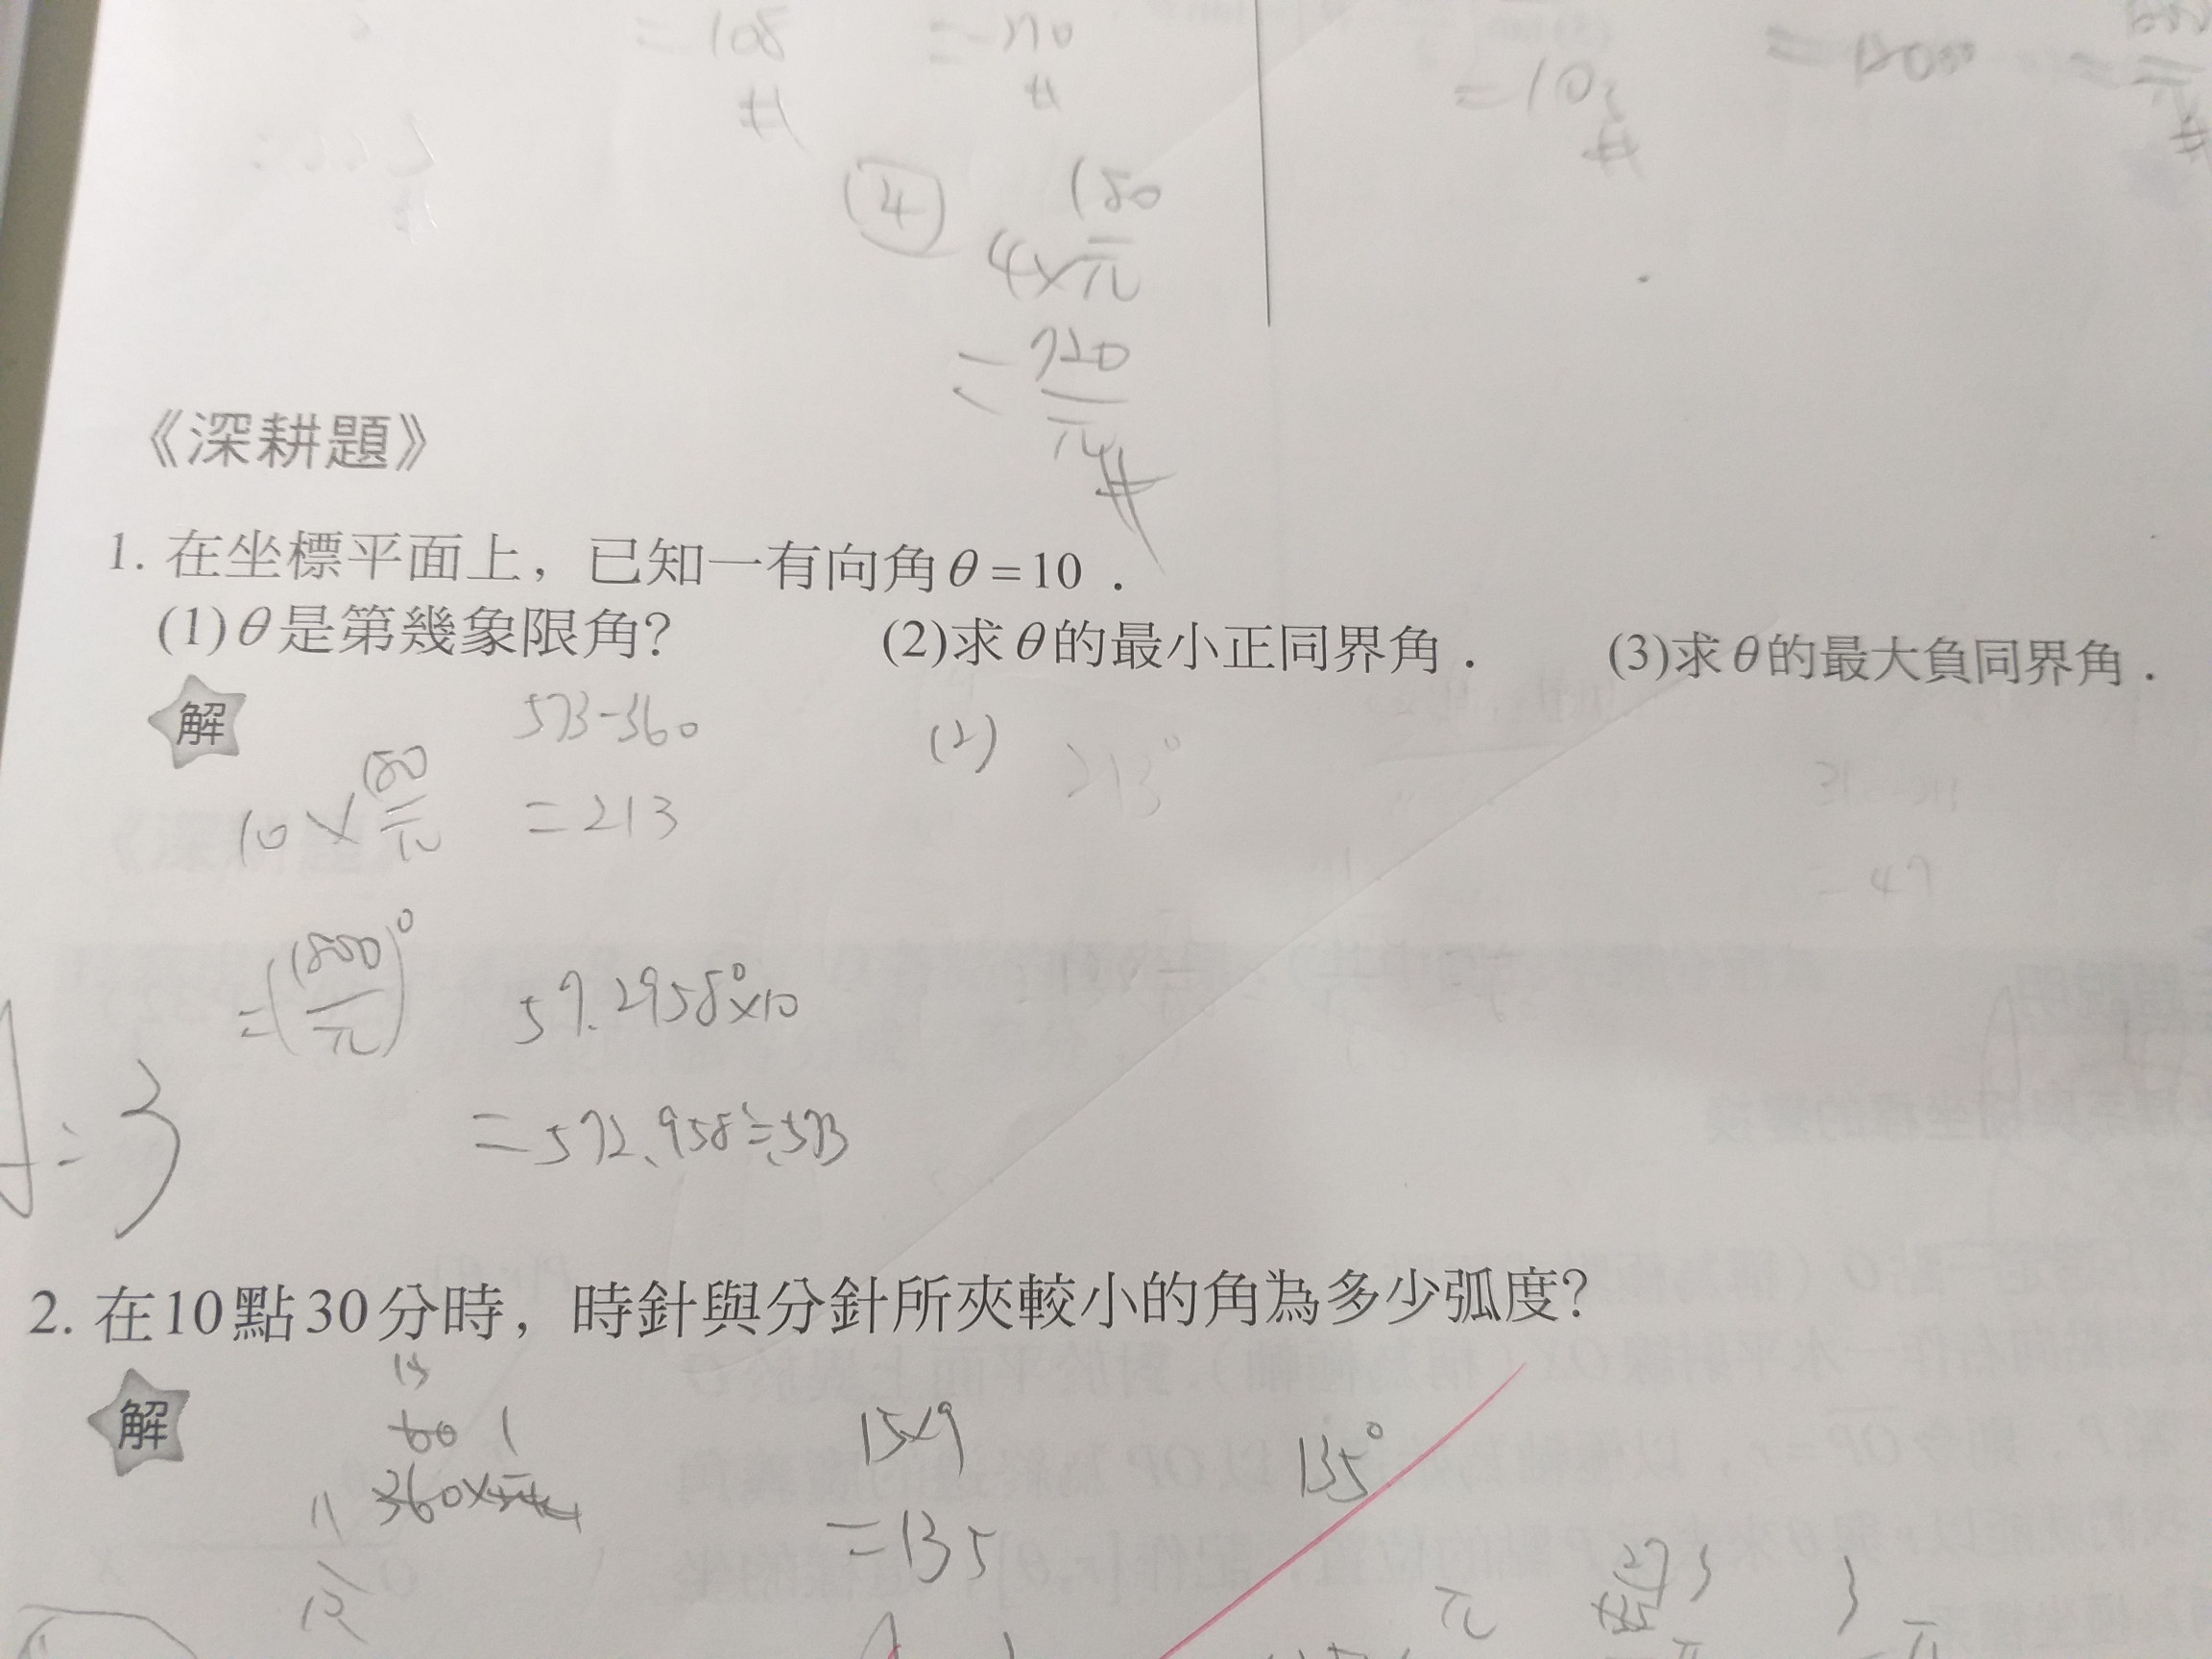 = 108
= 10
#
#
#
(4)
180
4×π
= 720
π
#
《深耕題》
1. 在坐標平面上，已知一有向角θ=10．
(1)θ是第幾象限角？ (2)求θ的最小正同界角． (3)求θ的最大負同界角．
解
573-360
(2)
213°
10×180/π
=213
=(1800/π)°
57.2958°×10
=572.958≒573
2. 在10點30分時，時針與分針所夾較小的角為多少弧度？
解
15×9
135°
=135
π